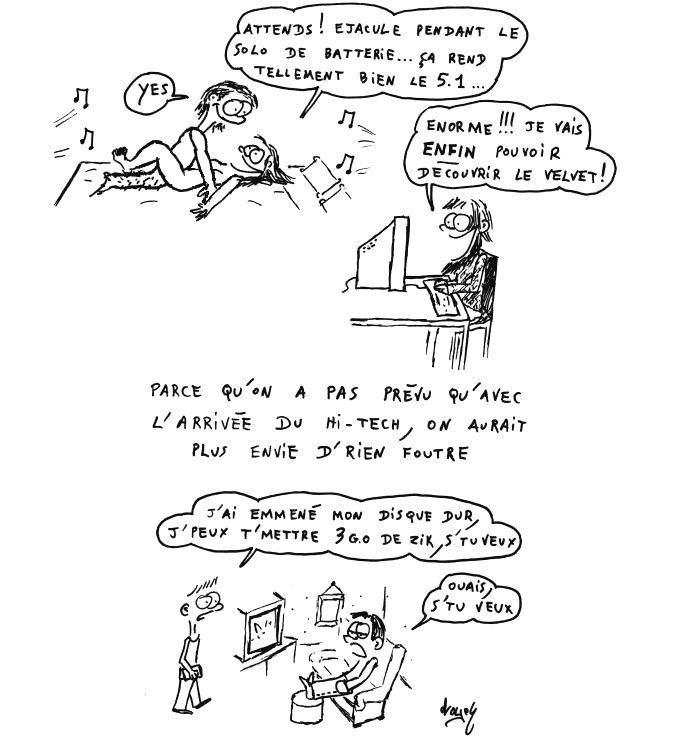 ATTENDS! EJACULE PENDANT LE
SOLO DE BATTERIE... ÇA REND
TELLEMENT BIEN LE 5.1...
YES
ENORME!!! JE VAIS
ENFIN POUVOIR
DECOUVRIR LE VELVET!
PARCE QU'ON A PAS PRÉVU QU'AVEC
L'ARRIVÉE DU HI-TECH, ON AURAIT
PLUS ENVIE D'RIEN FOUTRE
J'AI EMMENÉ MON DISQUE DUR,
J'PEUX T'METTRE 3 G.O DE ZIK, S'TU VEUX
OUAIS,
S'TU VEUX